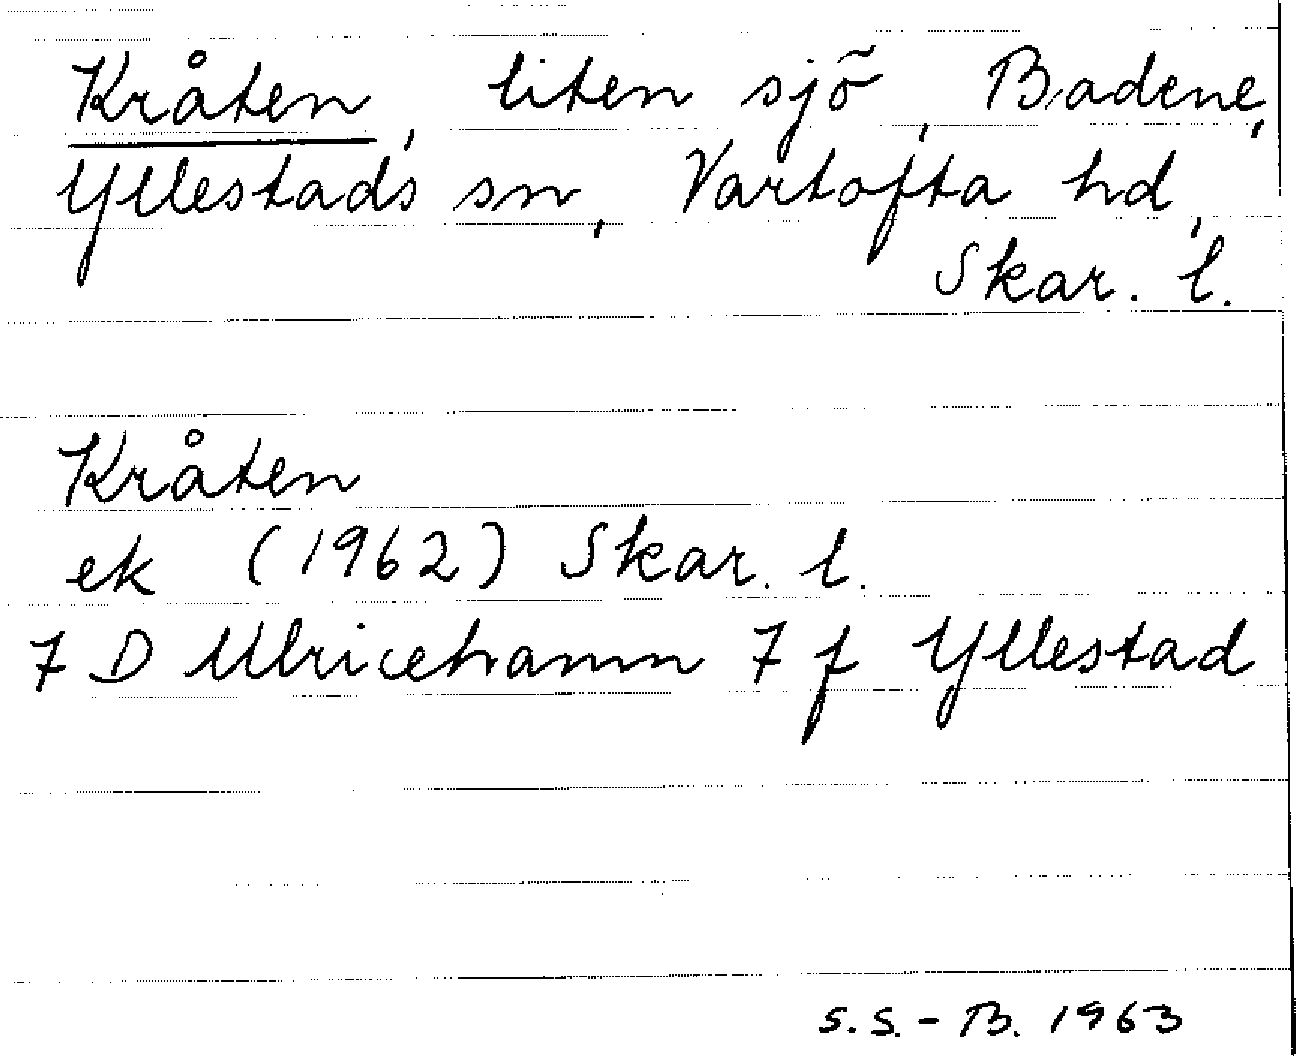 Kråten, liten sjö, Badene,
Yllestads sn, Vartofta hd,
Skar. l.
Kråten
ek (1962) Skar. l.
7 D Ulricehamn 7 f Yllestad
S.S.-B. 1963